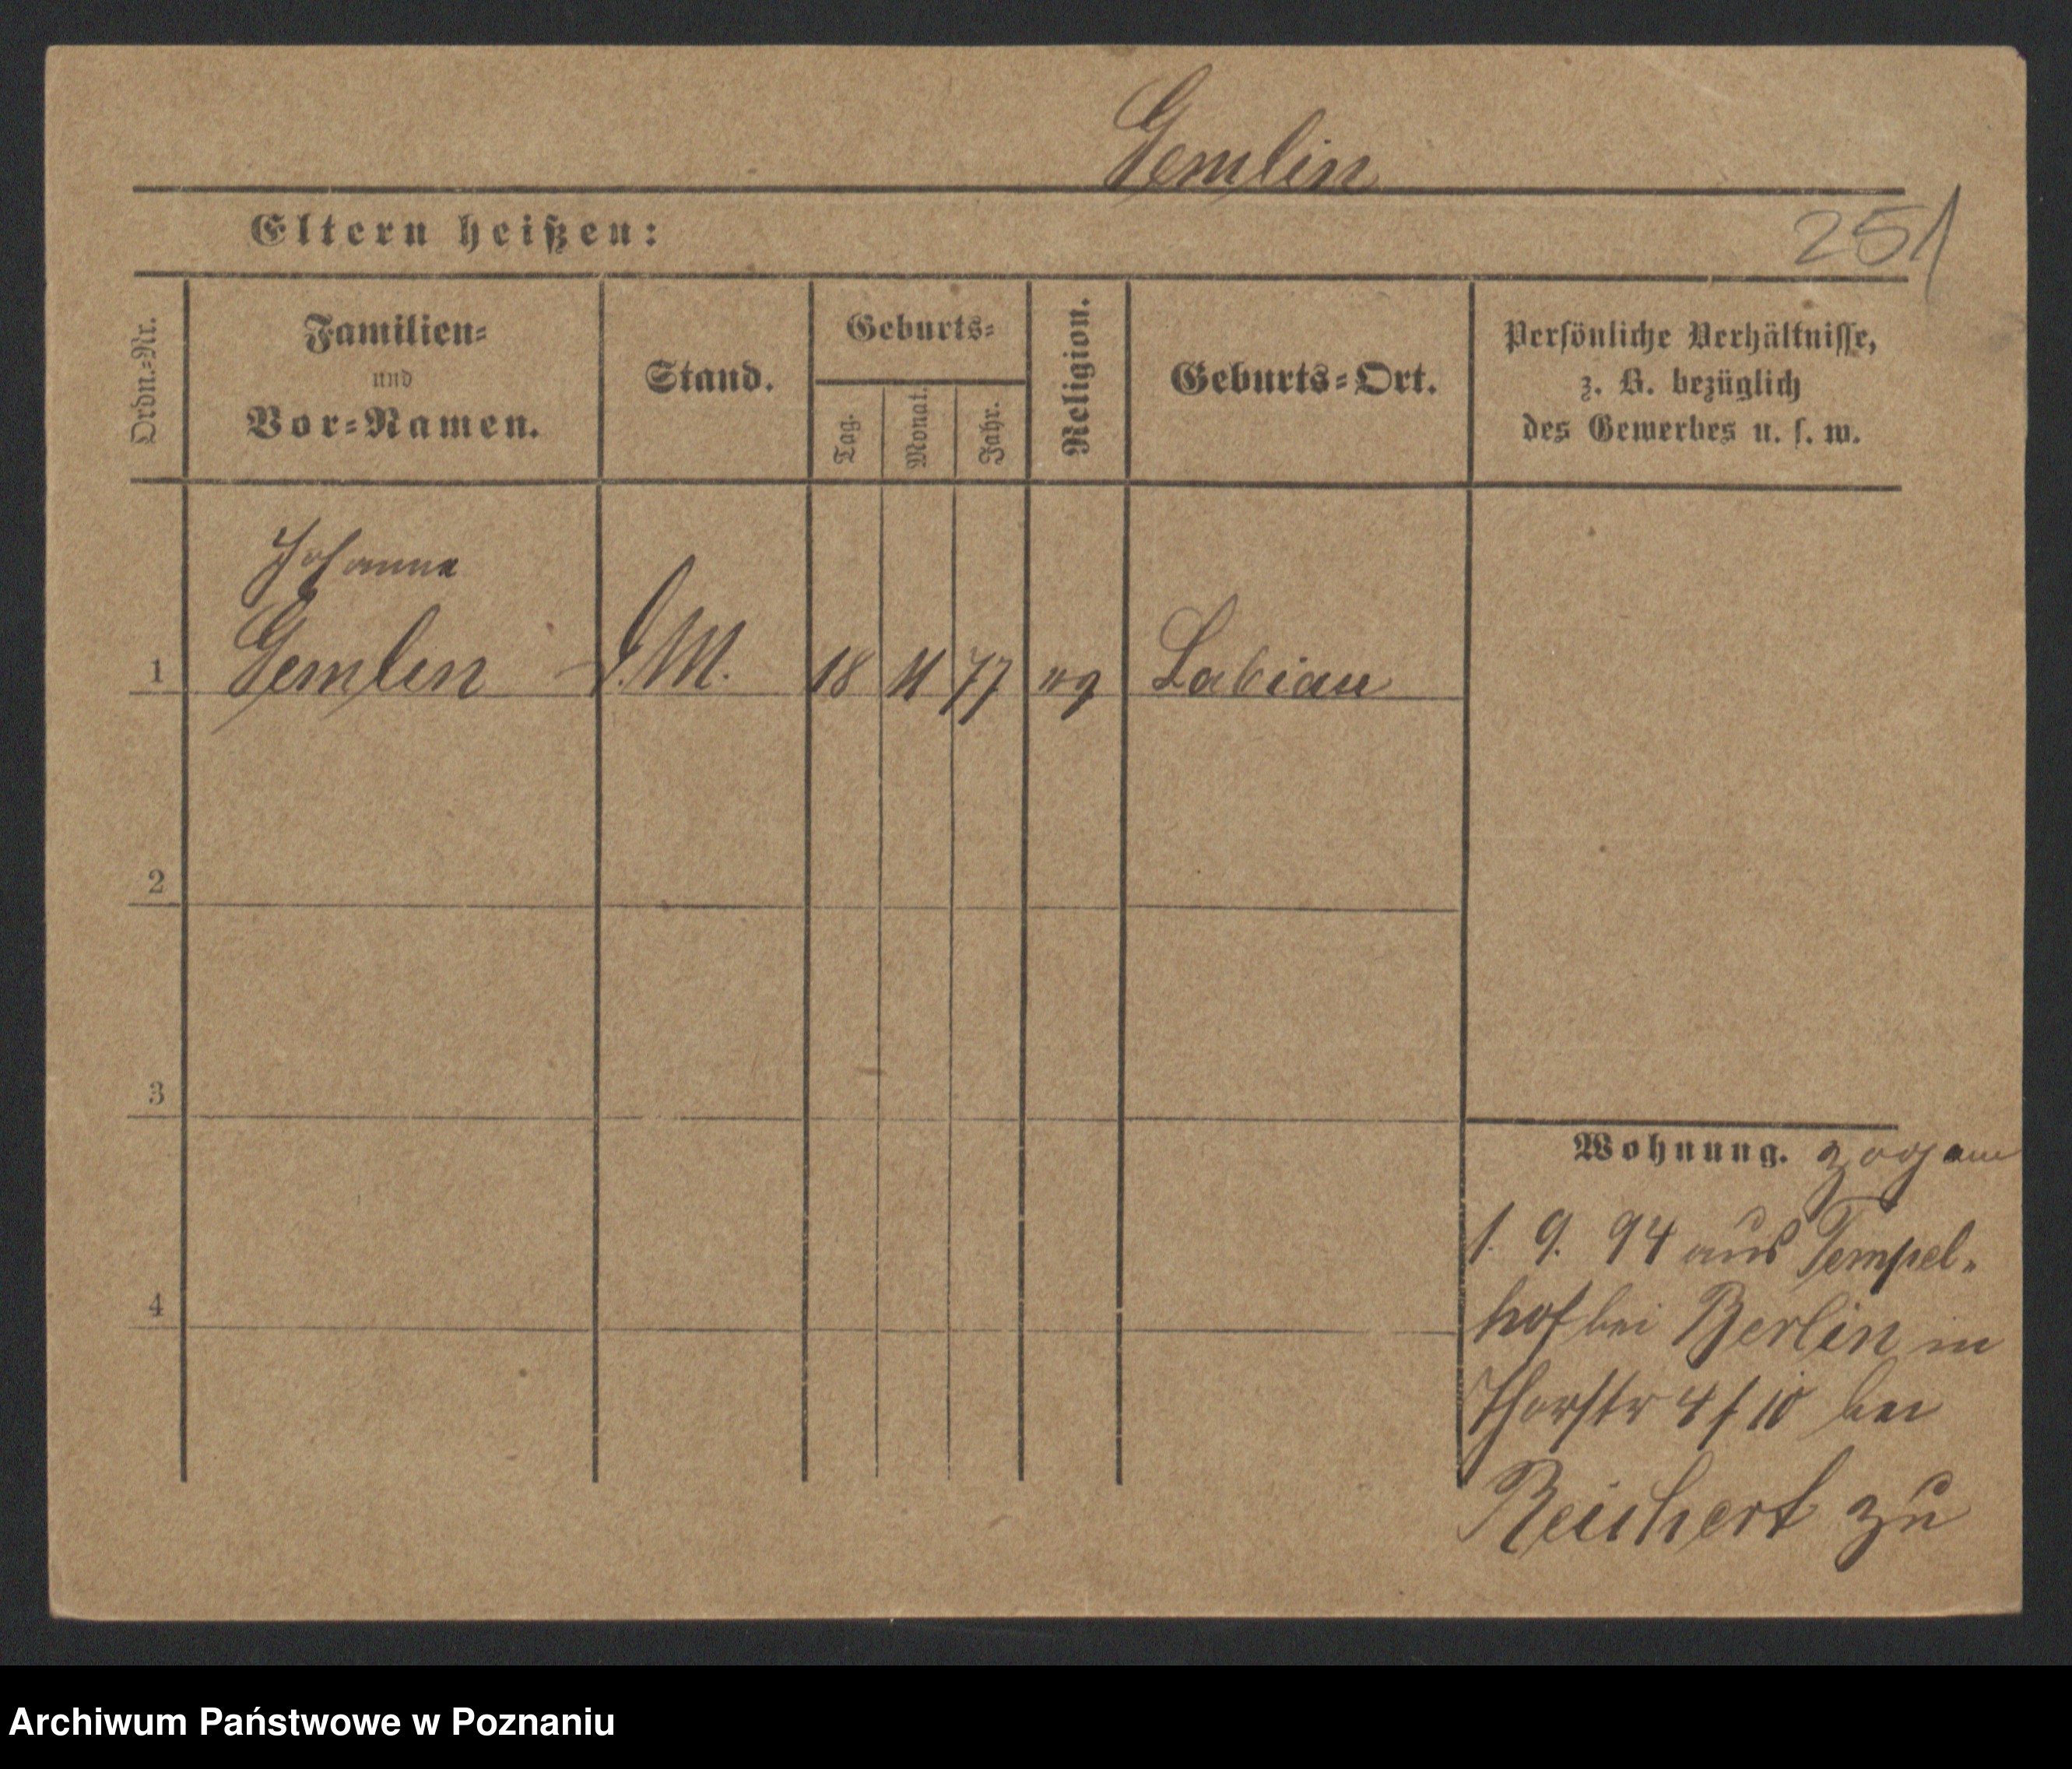 Gemlin
Eltern heißen:
251
Ordn.-Nr.
Familien-
und
Vor-Namen.
Stand.
Geburts-
Tag.
Monat.
Jahr.
Religion.
Geburts-Ort.
Persönliche Verhältnisse,
z. B. bezüglich
des Gewerbes u. s. w.
Johanna
1 Gemlin D.M. 18 11 77 ev Labiau
2
3
4
Wohnung. zog am
1. 9. 94 aus Tempel-
hof bei Berlin in
Thorstr 4/10 bei
Reichert zu
Archiwum Państwowe w Poznaniu